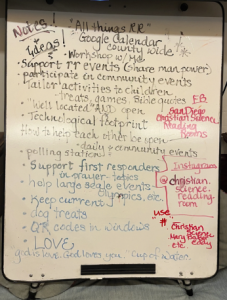 Notes!
"All things RR"
Google calendar
county wide
Ideas!
Workshop w/
• Support TT events (share man power)
• participate in community events
• Tailor activities to children
treats, games, Bible quotes
FB
• "Well located" open
San Diego
Christian Science
Reading
Rooms
• Technological footprint
• How to help each other be open
daily + community events
• polling station
Instagram
• Support first responders
in prayer - topics
@christian.
science.
reading.
rm
• help large scale events
Olympics, etc.
• Keep current
use
#
• dog treats
Christian
Science
• QR codes in windows
Mary Baker
Eddy
etc
• LOVE
God is love. God loves you. Cup of water.